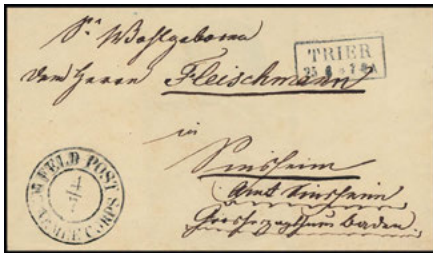 Sr. Wohlgeboren
dem Herrn Fleischmann
TRIER
in
Sinsheim
Amt Sinsheim
Grosherzogthum Baden.
FELD POST
ARMEE CORPS
4